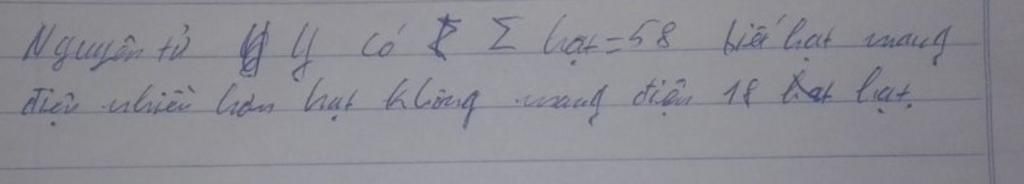 Nguyên tử Y có Σ hạt = 58 biết hạt mang
điện nhiều hơn hạt không mang điện 18 hạt.